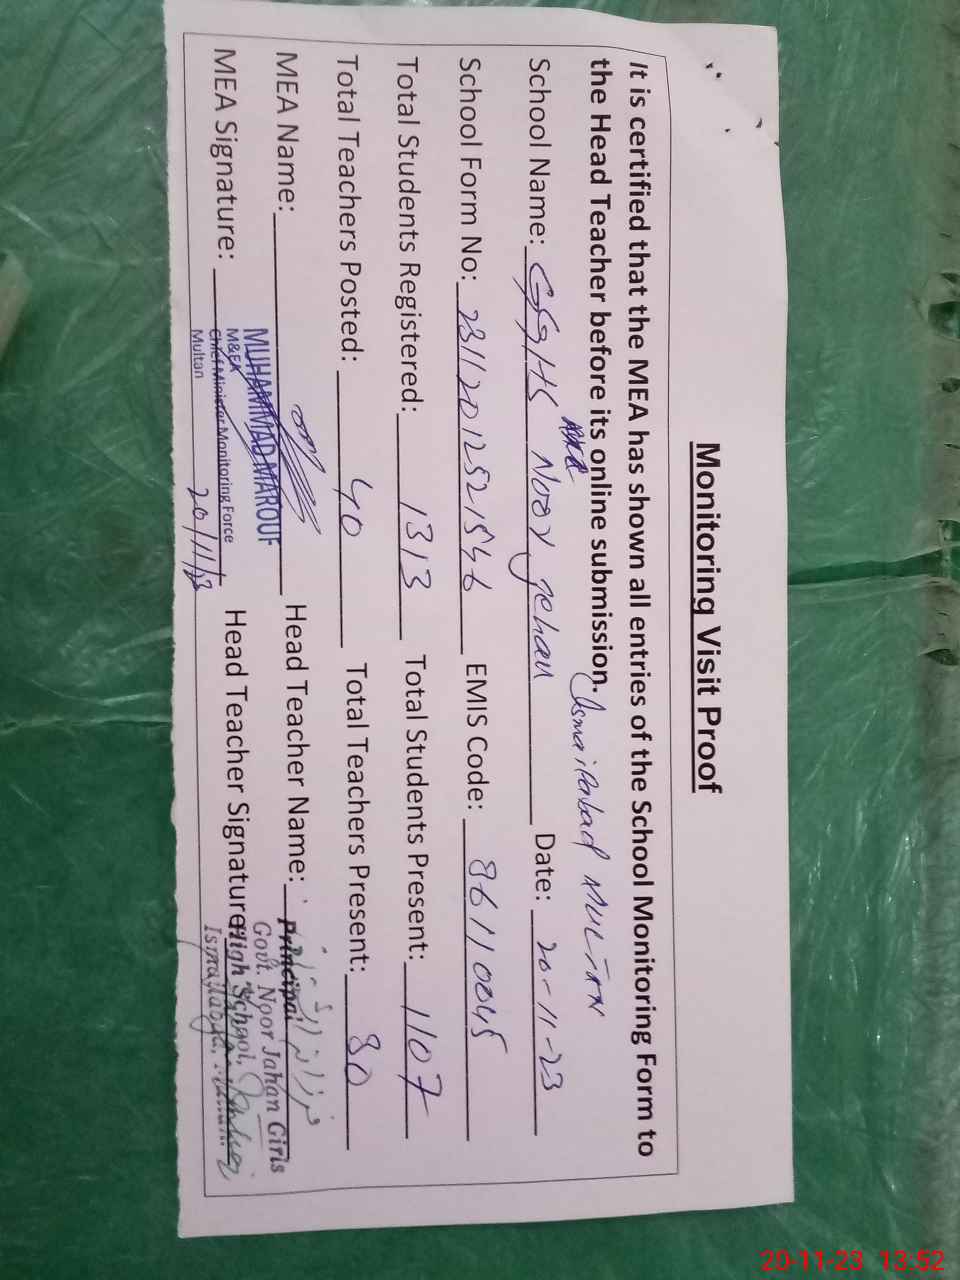 Monitoring Visit Proof
It is certified that the MEA has shown all entries of the School Monitoring Form to
the Head Teacher before its online submission.
Ismailabad MULTAN
School Name: GGHS Noor Jehan Date: 20-11-23
School Form No: 23112012521546 EMIS Code: 36110045
Total Students Registered: 1313 Total Students Present: 1107
Total Teachers Posted: 40 Total Teachers Present: 30
MEA Name: Head Teacher Name:
MUHAMMAD MAROUF
M&EA
Chief Minister Monitoring Force
Multan
20/11/23
MEA Signature: Head Teacher Signature:
Principal
Govt. Noor Jahan Girls
High School,
Ismailabad, Multan.
20-11-23 13:52